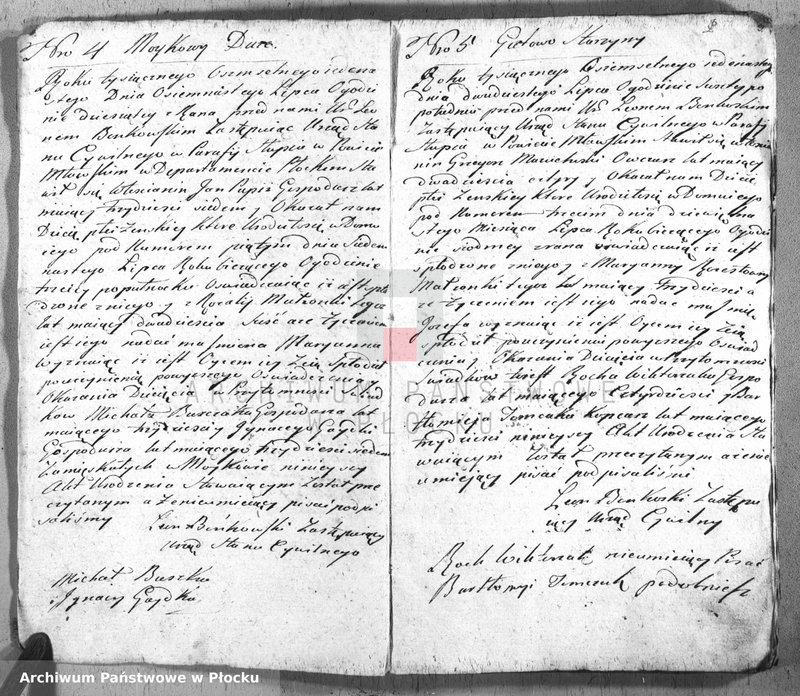 Nro 4 Moykowy Durc.
Roku tysiącznego Osmsetnego iedena
stego Dnia Osiemnastego Lipca Ogodzi
nie Dziesiatey z Rana przed nami Leo
nem Benkowskim Zastępuiąc Urząd Sta
nu Cywilnego w Parafy Słupsca w Powicie
Mławskim w Departamencie Płockim Sta
wił się Włoscianin Jan Gospodarz lat
maiący trzydziesci siedem y Okazał nam
Dziecię płci żenskiey Ktore Urodziło się w Domu
iego pod Numerem piątym dnia Siedem
nastego Lipca Roku bieżącego Ogodzinie
trzeciy popułudniu Oswiadczaiąc iż iest spło
dzone z niego y z Rozalij Małżonki iego
lat maiący dwadziescia Szesc a ze życzeniem
iest iego nadać ma Jmiona Maryanna
wyznaiąc iż iest Oycem iey Ze ią Spłodził
po uczynieniu powyzszego Oswiadczenia y
Okazania Dziecięcia w Przytomnosci Swiad
kow Michała Gospodarza lat
maiącego trzydziesci y Jgnacego Gaydki
Gospodarza lat maiącego trzydziesci siedem
Zamięszkałych w Moykowie ninieyszy
Akt Urodzenia Stawaiącym Został prze
czytanym a Ze nieumieiący pisac podpi
salismy Leon Benkowski Zastępuiący
Urząd Stanu Cywilnego
Michał
Ignacy Gaydka
Nro 5 Giełowo Starzyny
Roku tysiącznego Osiemsetnego iedenastego
dnia dwudziestego Lipca Ogodzinie Szustey po
południu przed nami Leonem Benkowskim
Zastępuiący Urząd Stanu Cywilnego w Parafy
Słupsca w Powicie Mławskim Stawił się
Grzegorz Owczarz lat maiący
dwadziescia cztyry y Okazał nam Dziecię
płci Zenskiey Ktore Urodziło się w Domu iego
pod Numerem trzecim dnia dziewiętna
stego Miesiąca Lipca Roku bieżącego Ogodzi
nie siodmey z rana oswiadczaiąc iż iest
spłodzone z niego y z Maryanny
Małżonki iego lat maiący trzydziesci a
ze życzeniem iest iego nadac ma Jmie
Jozefa wyznaiąc iż iest Oycem iey Ze ią
spłodził po uczynieniu powyzszego Oswiad
czenia y Okazania Dziecięcia w Przytomnosci
Swiadkow Rocha Gospo
darza lat maiącego Czterdziesci y Bar
tłomieja Tomczaka lat maiącego
trzydziesci ninieyszy Akt Urodzenia Sta
waiącym Został przeczytanym a ze nie
umieiący pisac podpisalismy
Leon Benkowski Zastępu
iący Urząd Cywilny
Roch nieumieiący Pisac
Bartłomiej Tomczak podobniesz
ARCHIWUM PAŃSTWOWE
W PŁOCKU
Archiwum Państwowe w Płocku